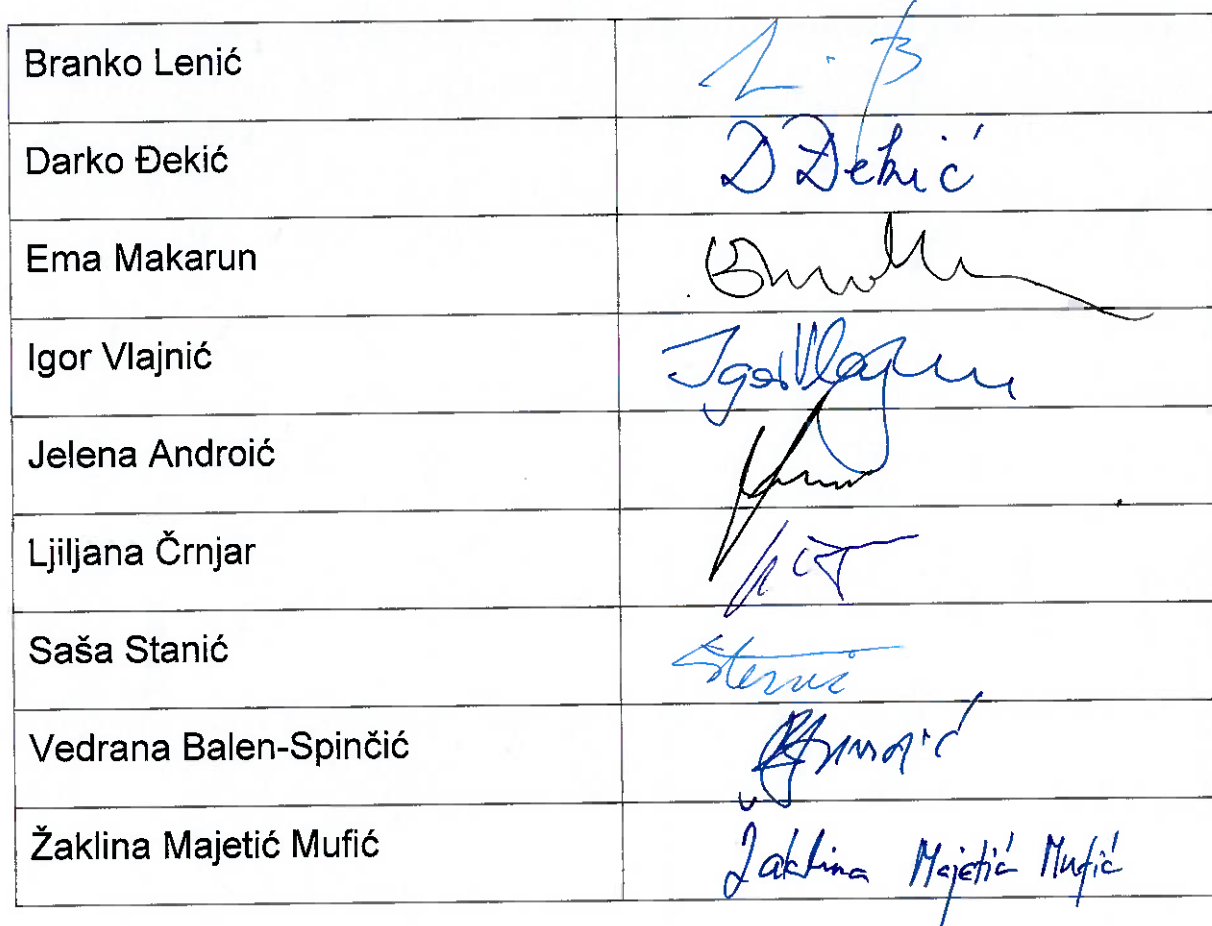 Branko Lenić
Darko Đekić D Đekić
Ema Makarun
Igor Vlajnić Igor Vlajnić
Jelena Androić
Ljiljana Črnjar
Saša Stanić Stanić
Vedrana Balen-Spinčić
Žaklina Majetić Mufić Žaklina Majetić Mufić